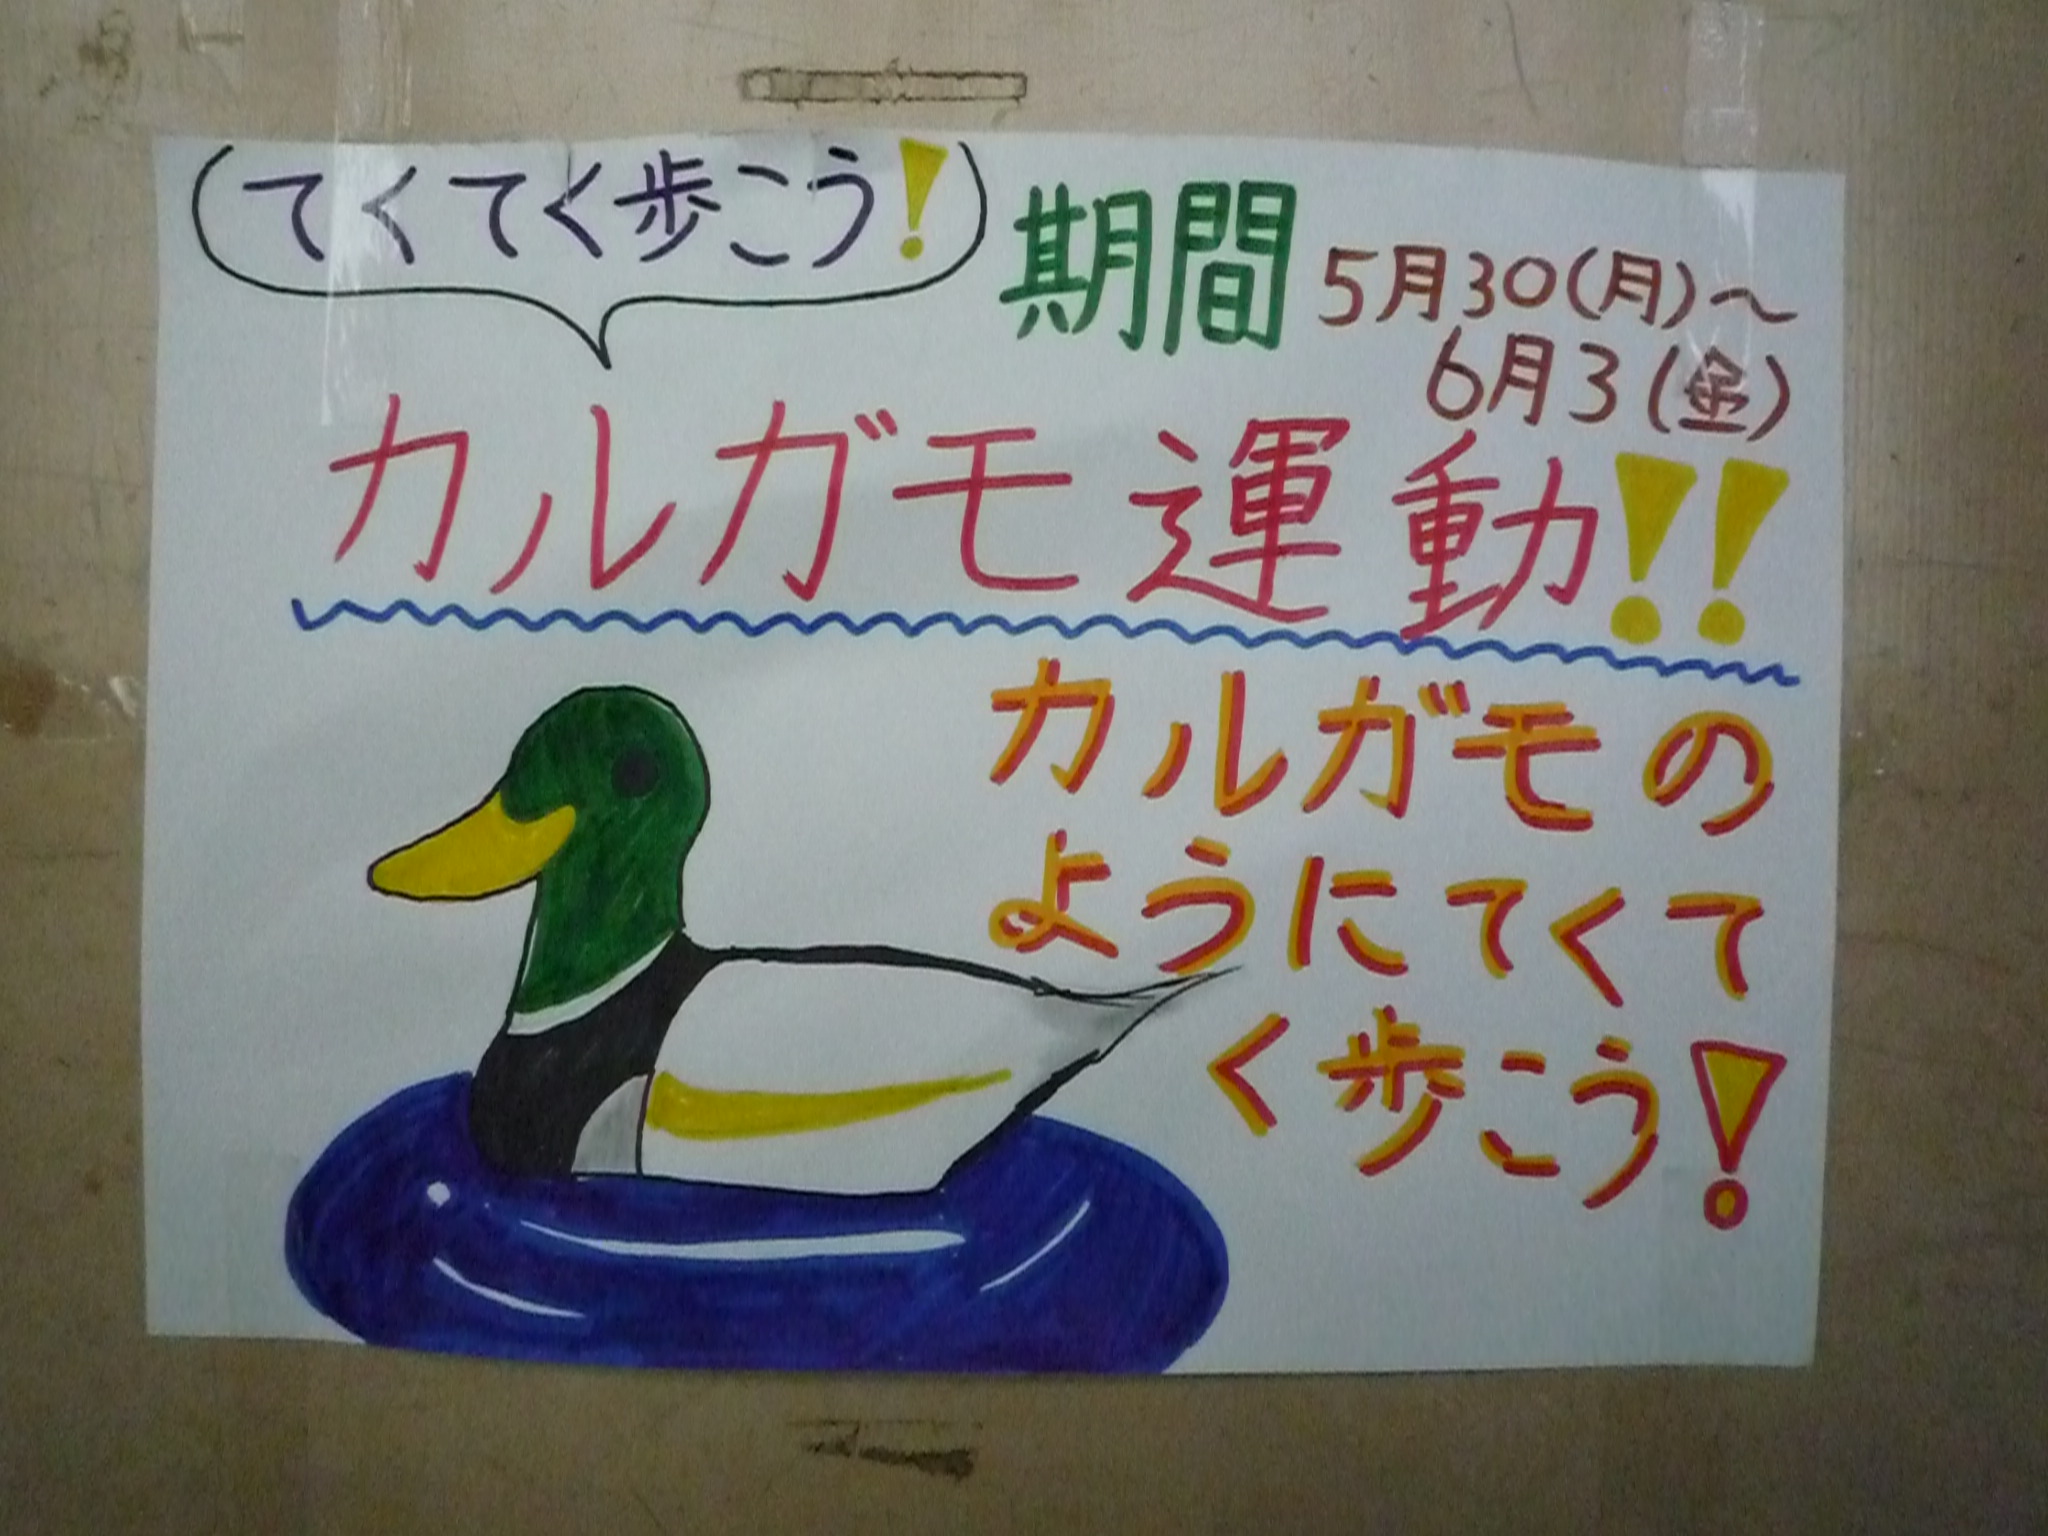 てくてく歩こう!
期間 5月30(月)～
6月3(金)
カルガモ運動!!
カルガモの
ようにてくて
く歩こう!